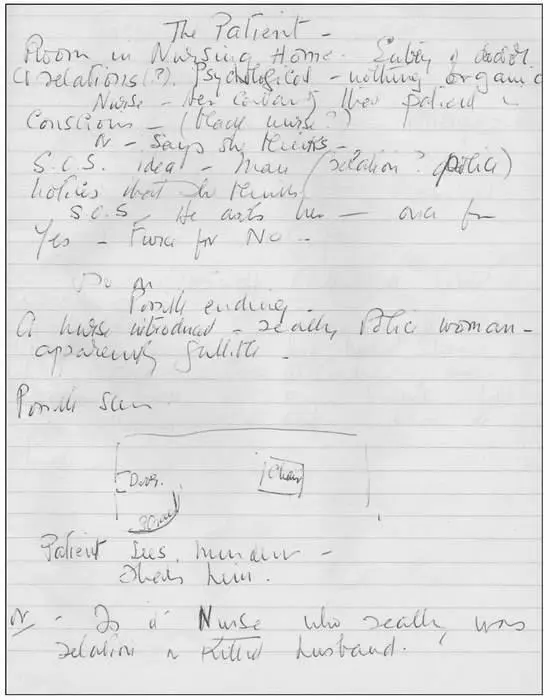 The Patient -
Room in Nursing Home. Entry of doctor
& relations (?). Psychological - nothing organic
Nurse - her conduct her patient is
Conscious - (black nurse?)
N - Says she thinks -
S.C.S. idea - Man (relation? police)
notices that she
S.C.S. He asks her - once for
Yes - Twice for No -
or
Possible ending -
A nurse introduced - really Police woman -
apparently gullible -
Possible Scene
Door.
Chair
Screen
Patient sees murderer -
him.
N - Is it Nurse who really was
relation & Killed husband.